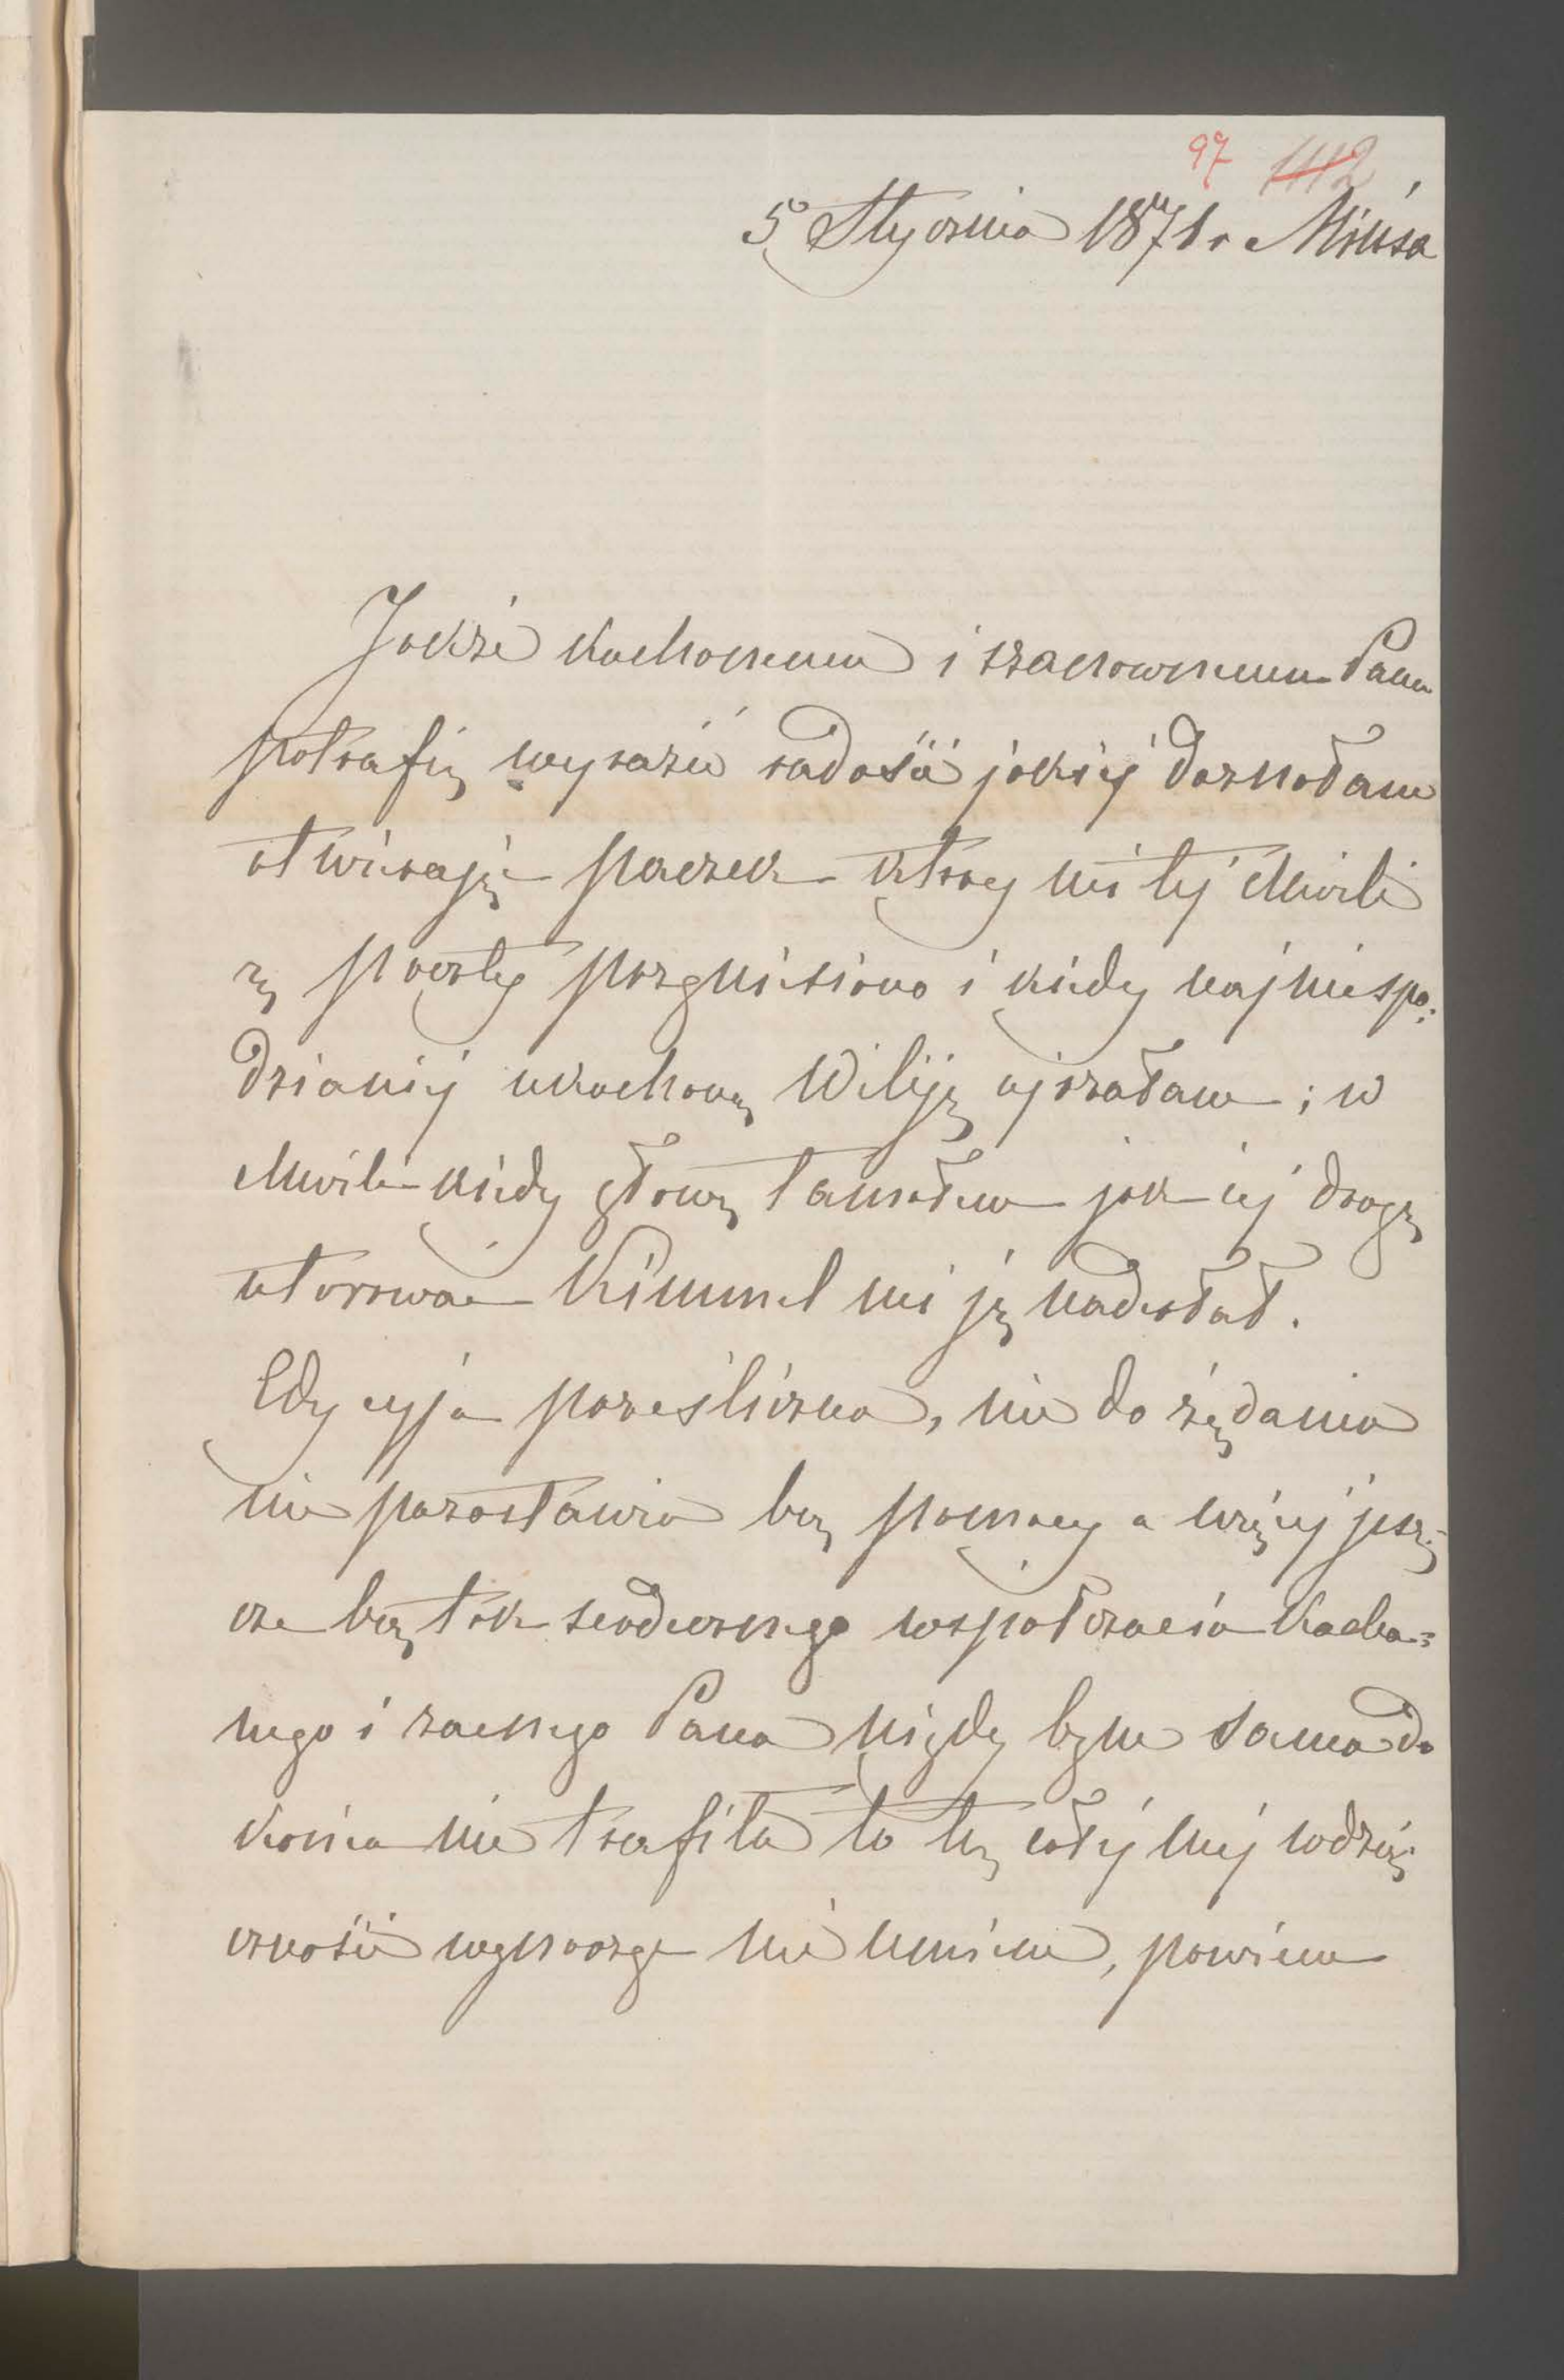 97 1112
5 Stycznia 1871 r Mińsk
Jakże kochanemu i szanownemu Panu
potrafię wyrazić radość jakiéj doznałam
otwierając paczek który mi téj chwili
z poczty przyniesiono i kiedy najniespo-
dzianiéj ukochaną Wiliję ujrzałam; w
chwili kiedy głowę łamałem jak jéj drogę
utorować Kimmel mi ją nadesłał.
Edycyja prześliczna, nic do żądania
nie pozostawia bez pomocy a więcéj jesz-
cze bez tak serdecznego współczucia Kocha-
nego i zacnego Pana nigdy bym sama do
końca nie trafiła to też całéj méj wdzię-
czności wyrazić nie umiem, powiem